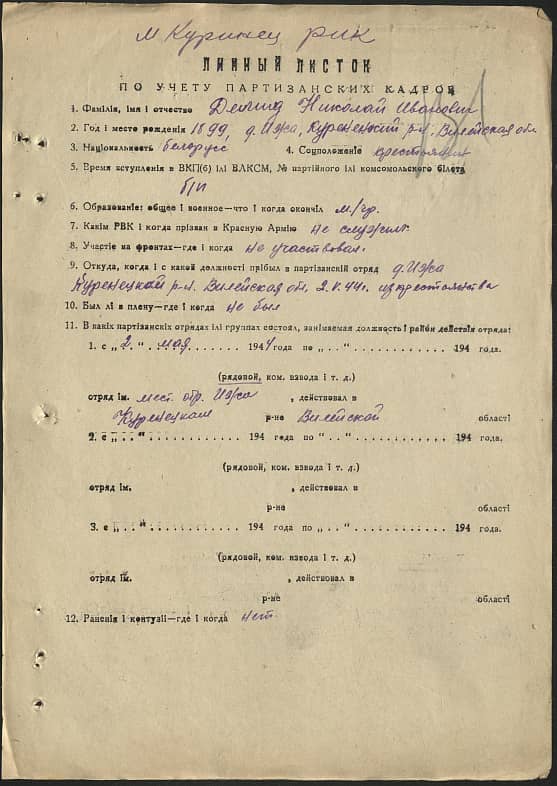 м Куринец рик
ЛИЧНЫЙ ЛИСТОК
ПО УЧЕТУ ПАРТИЗАНСКИХ КАДРОВ
1. Фамілія, імя і отчество Николай Иванович
2. Год і место рождения 1899, д. Ижа, Куренецкий р-н. Вилейская обл
3. Национальность белорусс 4. Соцположение крестьянин
5. Время вступленія в ВКП(б) ілі ВЛКСМ, № партійного ілі комсомольского білета
б/п
6. Образование: общее і военное—что і когда окончіл м/гр.
7. Какім РВК і когда прізван в Красную Армію не служил
8. Участіе на фронтах—где і когда не участвовал.
9. Откуда, когда і с какой должності прібыл в партізанскій отряд д. Ижа
Куренецкой р-н. Вилейская обл. 2.V.44г. из крестьянства
10. Был лі в плену—где і когда не был
11. В какіх партізанскіх отрядах ілі группах состоял, занімаемая должность і район действія отряда:
1. с „2.“ мая....... 1944 года по „..“............... 194 года.
(рядовой, ком. взвода і т. д.)
отряд ім. мест. отр. Ижа , действовал в
Куренецком р-не Вилейской області
2. с „..“............ 194 года по „..“............... 194 года.
(рядовой, ком. взвода і т. д.)
отряд ім. , действовал в
р-не області
3. с „..“............ 194 года по „..“............... 194 года.
(рядовой, ком. взвода і т. д.)
отряд ім. , действовал в
р-не області
12. Раненія і контузіі—где і когда нет.